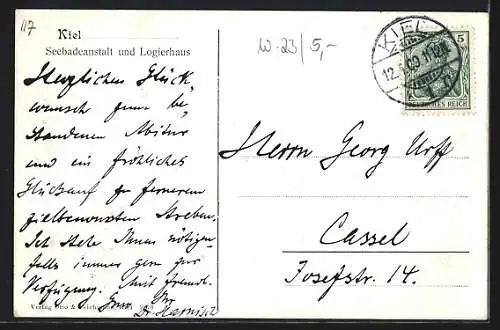 117
Kiel
Seebadeanstalt und Logierhaus
Herzlichen Glück
wunsch zum be
standenen Abitur
und ein fröhliches
Glückauf zu fernerem
zielbewussten Streben.
Ich stehe Ihnen nötigen
falls immer gern zur
Verfügung. Mit freundl.
Gruss Ihr
Dr. Harnisch
Verlag
W-23/5,-
KIEL
12. 09. 11-12
5
DEUTSCHES REICH
Herrn Georg Urff
Cassel
Josefstr. 14.